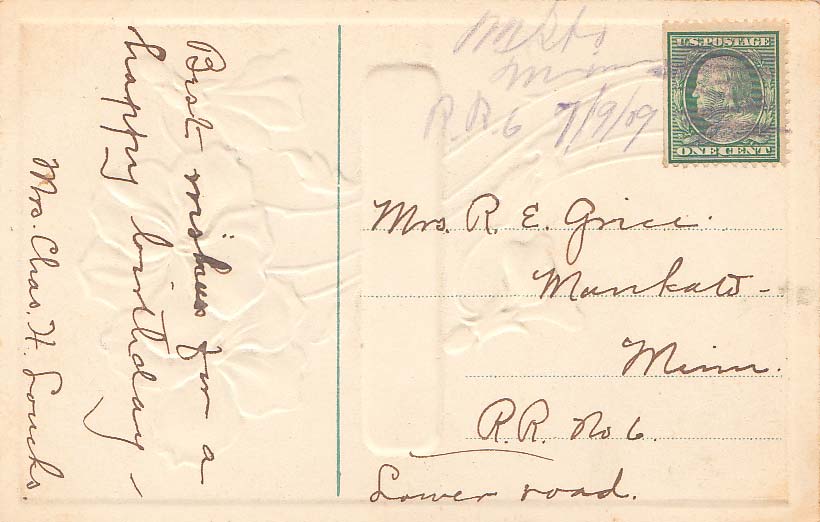 Best wishes for a
happy birthday –
Mrs. Chas. H. Loucks.
Mkto
Minn
R.R. 6 7/9/09
U.S. POSTAGE
ONE CENT
Mrs. R. E. Grice.
Mankato –
Minn.
R.R. No 6.
Lower road.